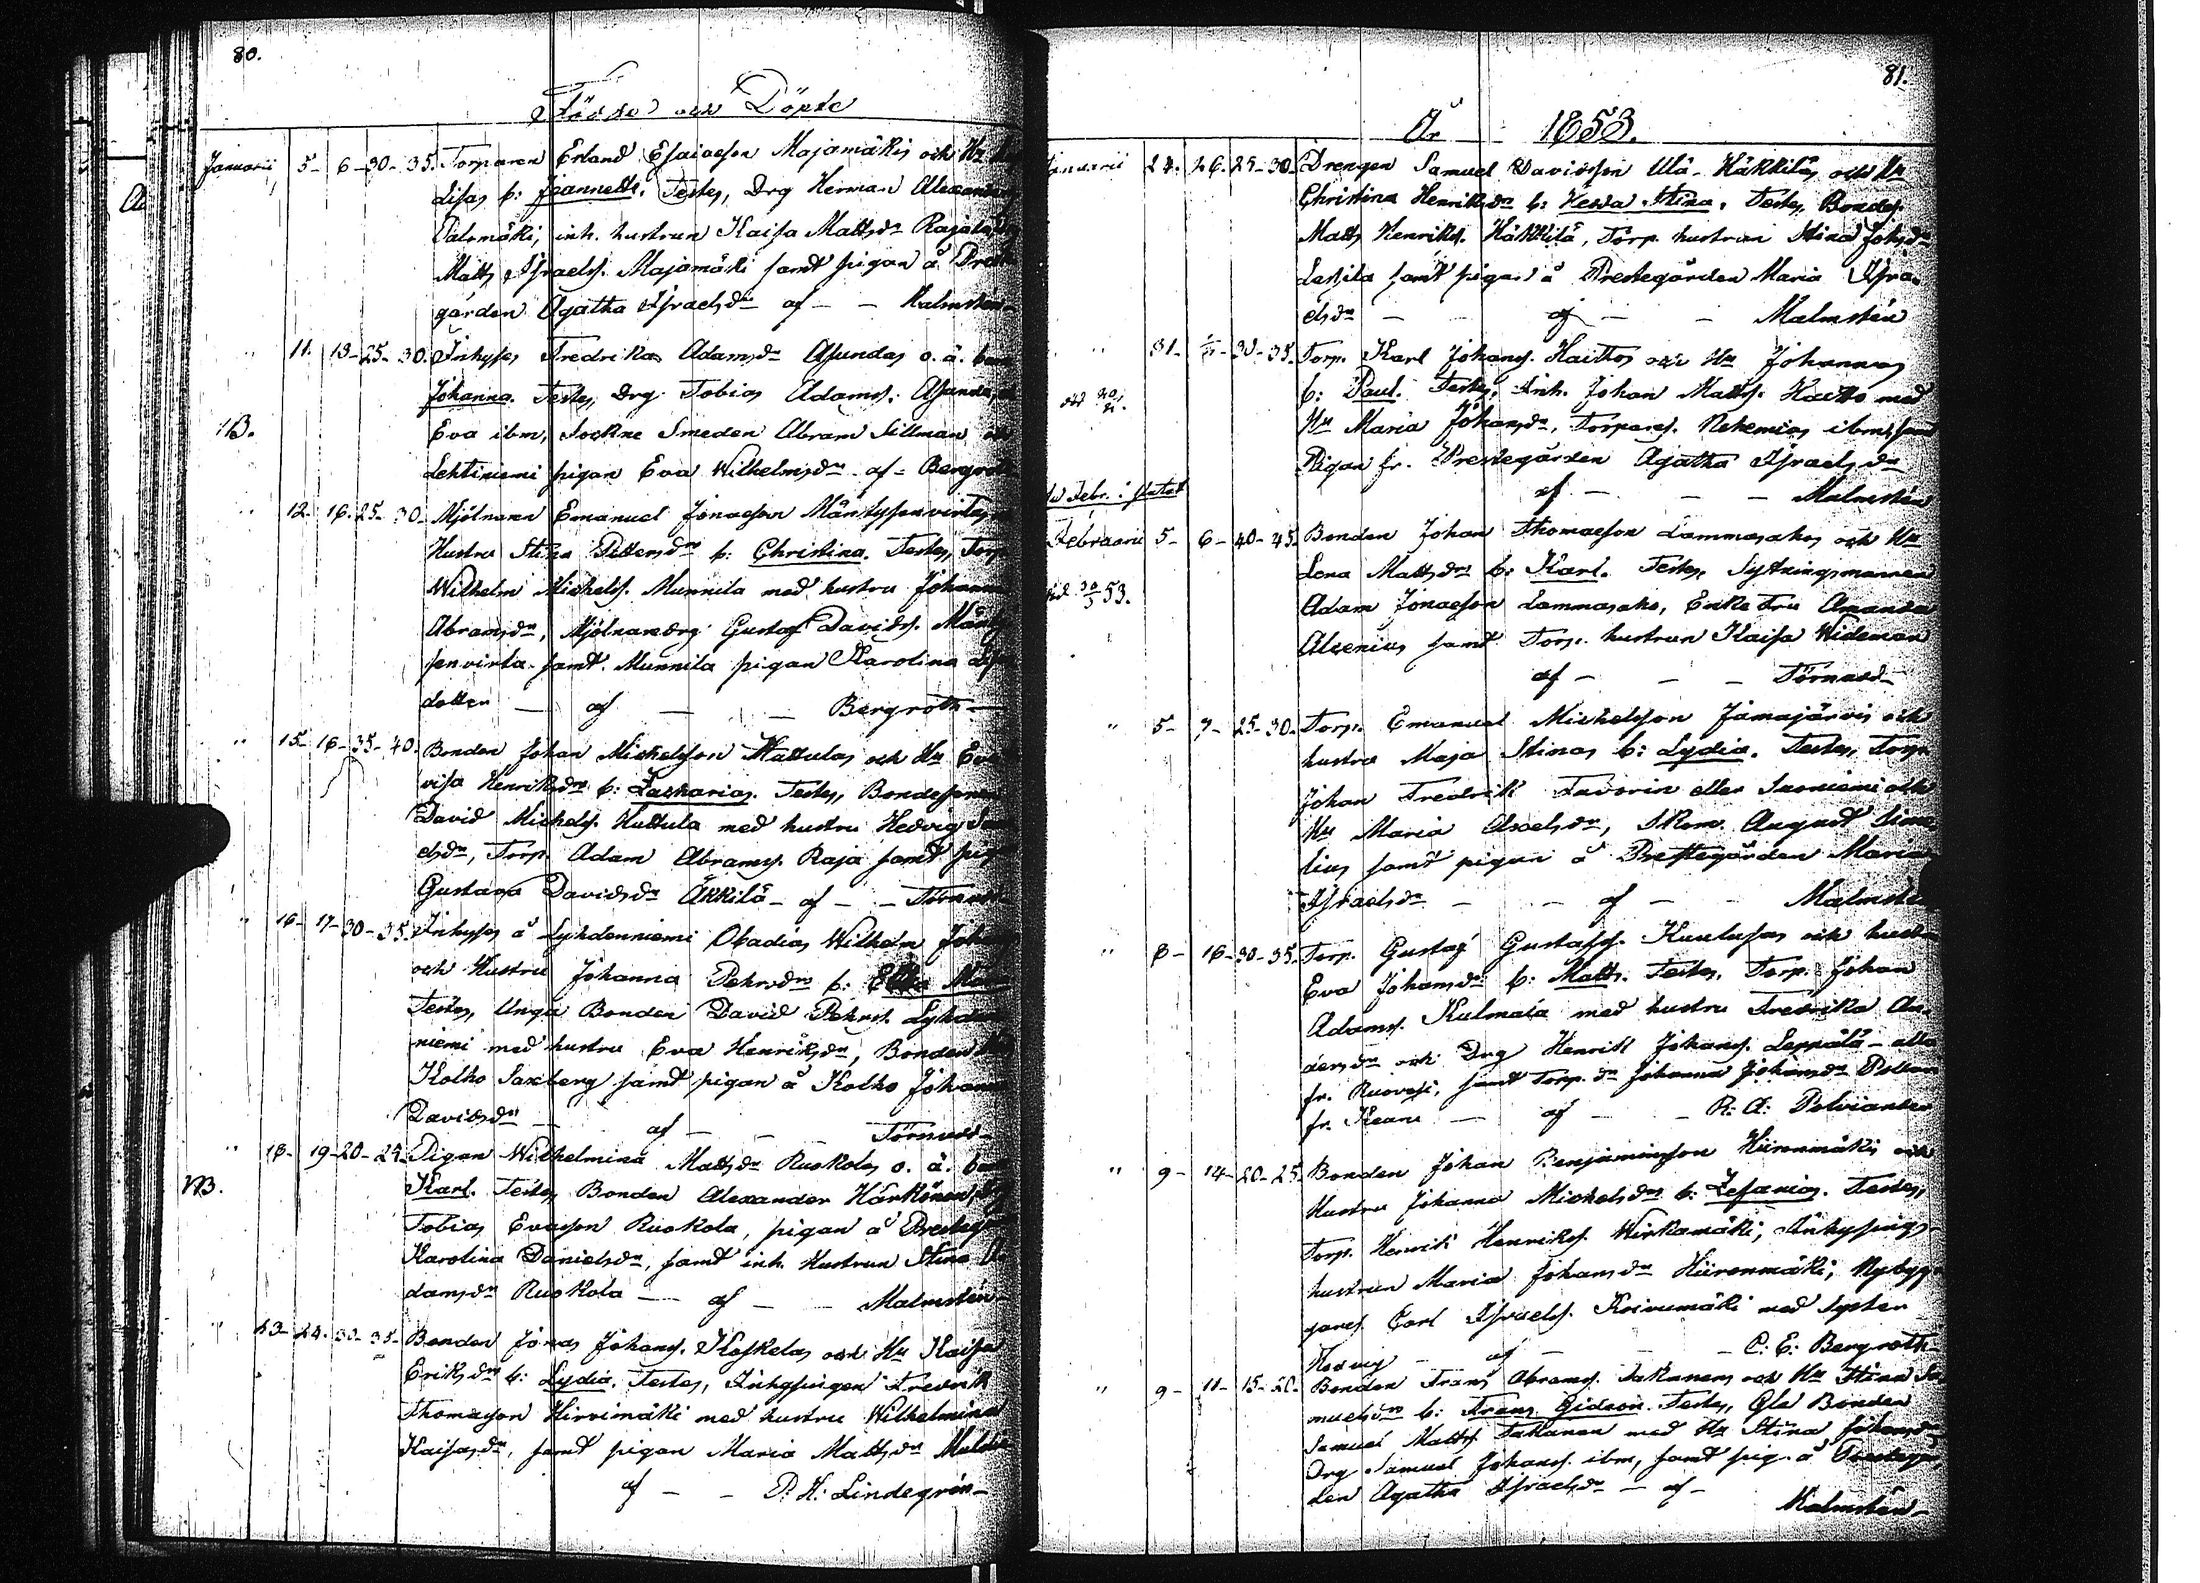 80.
Födde och Döpte
Januarii 5- 6-30-35. Torparen Erland Esaiaeson Majamäkis och Hu
Lisas b: Jeannette. Testes, Drg Herman Alexanders
Palomäki, inh. hustrun Kaisa Mattsdr Rajala,
Matts Israelss. Majamäki samt pigan å Preste
gården Agatha Israelsdr af - - Malmstén-
" 11. 13-25-30. Inhyses Fredrika Adamsdr Asundas o. ä. barn
Johanna. Testes, Drg Tobias Adamss. Asunda,
NB. Eva ibm, Sockne Smeden Abram Sillman och
Lehtiniemi pigan Eva Wilhelmsdr - af - Bergroth
" 12- 16-25-30- Mjölnaren Emanuel Jonaeson Mäntysenvirtas
Hustru Stina Pettersdr b: Christina. Testes, Torp.
Wilhelm Michelss. Munnila med hustru Johanna
Abramsdr, Mjölnaredrg Gustaf Davidss. Mänty
senvirta samt Munnila pigan Karolina Lisæ
dotter - af - - Bergroth -
" 15- 16-35-40. Bonden Johan Michelsson Huttulas och Hu Eva
visa Henriksdrs b: Zacharias. Testes, Bondesonen
David Michelss. Huttula med hustru Hedvig Samu
elsdr, Torp. Adam Abramss. Raja samt pigan
Gustava Davidsdr Äkkilä - af - - Törnudd
" 16- 17-30-35. Inhyses å Lyhdenniemi Obadias Wilhelm Johans
och Hustru Johanna Pehrsdrs b:
Testes, Unga Bonden David Pehrss. Lyhden
niemi med hustru Eva Henriksdr, Bonden
Kolho Saxberg samt pigan å Kolho Johanna
Davidsdr - af - - Törnudd-
" 18- 19-20-25. Pigan Wilhelmina Mattsdr Ruokolas o. ä. barn
NB. Karl. Testes, Bonden Alexander Härkönen, Drg
Tobias Evæson Ruokola, pigan å Prestegå
Karolina Danielsdr, samt inh. Hustrun Stina A
damsdr Ruokola - af - - Malmstén-
" 23- 24. 30-35- Bonden Jonas Johanss. Koskelas och Hu Kaisa
Eriksdrs b: Lydia. Testes, Inhysingen Fredrik
Thomasson Hirvimäki med hustru Wilhelmina
Kaisasdr, samt pigan Maria Mattsdr
af - - P. H: Lindegrén-
81.
År 1853.
Januarii 24. 26. 25-30. Drengen Samuel Davidsson Ulä-Häkkiläs och Hu
Christina Henriksdrs b: Hedda Stina. Testes, Bondes.
Matts Henrikss. Häkkilä, Torp. hustrun Stina Johsdr
Lassila samt pigan å Prestegården Maria Isra-
elsdr - af - - Malmstén
" 31- 30-35. Torp. Karl Johanss. Kauttos och Hu Johannas
b: Paul. Testes, Inh. Johan Mattss. Kautto med
Hu Maria Johansdr, Torpares. Nehemias ibm, samt
Pigan fr. Prestegården Agatha Israelsdr
af - - - Malmstén
Februarii 5- 6-40-45. Bonden Johan Thomaeson Lammasahos och Hu
Lena Mattsdrs b: Karl. Testes, Sytningsmannen
Adam Jonaeson Lammasaho, Enke Fru Amanda
Alcenius samt Torp. hustrun Kaisa Wideman
af - - - Törnudd-
" 5- 7-25-30. Torp. Emanuel Michelsson Jämäjärvis och
hustru Maja Stinas b: Lydia. Testes, Torp.
Johan Fredrik Favorin eller Suoniemi och
Hu Maria Axelsdr, Skom. August Sime-
lius samt pigan å Prestegården Maria
Israelsdr - - af - - Malmstén
" 8- 16-30-35. Torp. Gustaf Gustafss. Kuulusas och hustru
Eva Johansdrs b: Matts. Testes, Torp. Johan
Adamss. Kulmala med hustru Fredrika An-
dersdr och Drg Henrik Johanss. Leppälä - alla
fr. Ruovesi, samt Torp. dr Johanna Johansdr
fr. Keuru - af - - R: A: Polviander
" 9- 14-20-25. Bonden Johan Benjaminsson Hiironmäkis och
Hustru Johanna Michelsdrs b: Zefanias. Testes,
Torp. Henrik Henrikss. Wirkamäki, Inhysings-
hustrun Maria Johansdr Hiironmäki, Nybyg-
gares. Carl Israelss. Koivumäki med syster
Hedvig - af - - C: E: Bergroth-
" 9- 11-15-20. Bonden Frans Abramss. Takanens och Hu Stina Sa
muelsdrs b: Frans Gideon. Testes, Gle Bonden
Samuel Mattss. Takanen med Hu Stina Johansdr
Drg Samuel Johanss. ibm, samt pig. å Prestegår
den Agatha Israelsdr - af - Malmstén-